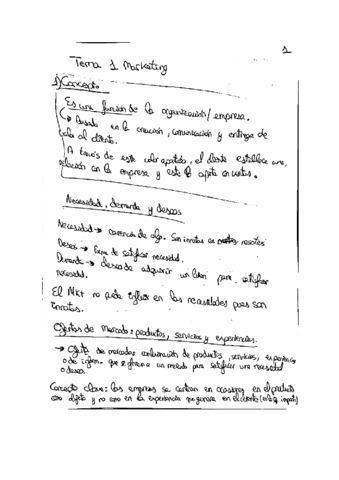 1
Tema 1 Marketing
1) Concepto
Es una función de la organización/empresa.
→ Basado en la creación, comunicación y entrega de
valor al cliente.
A través de este valor aportado, el cliente establece una
relación con la empresa y este le aporta en ventas.
Necesidad, demanda y deseos
Necesidad → carencia de algo. Son innatas en nosotros
Deseos → forma de satisfacer necesidad.
Demanda → deseo de adquirir un bien para satisfacer
necesidad.
El Mkt no puede influir en las necesidades pues son
innatas.
Ofertas de mercado: productos, servicios y experiencias.
→ Oferta de mercado: combinación de productos, servicios, experiencias
o de inform. que se ofrece a un mercado para satisfacer una necesidad
o deseo.
Concepto clave: las empresas se centran en ocasiones en el producto
como objeto y no como en la experiencia que genera en el cliente